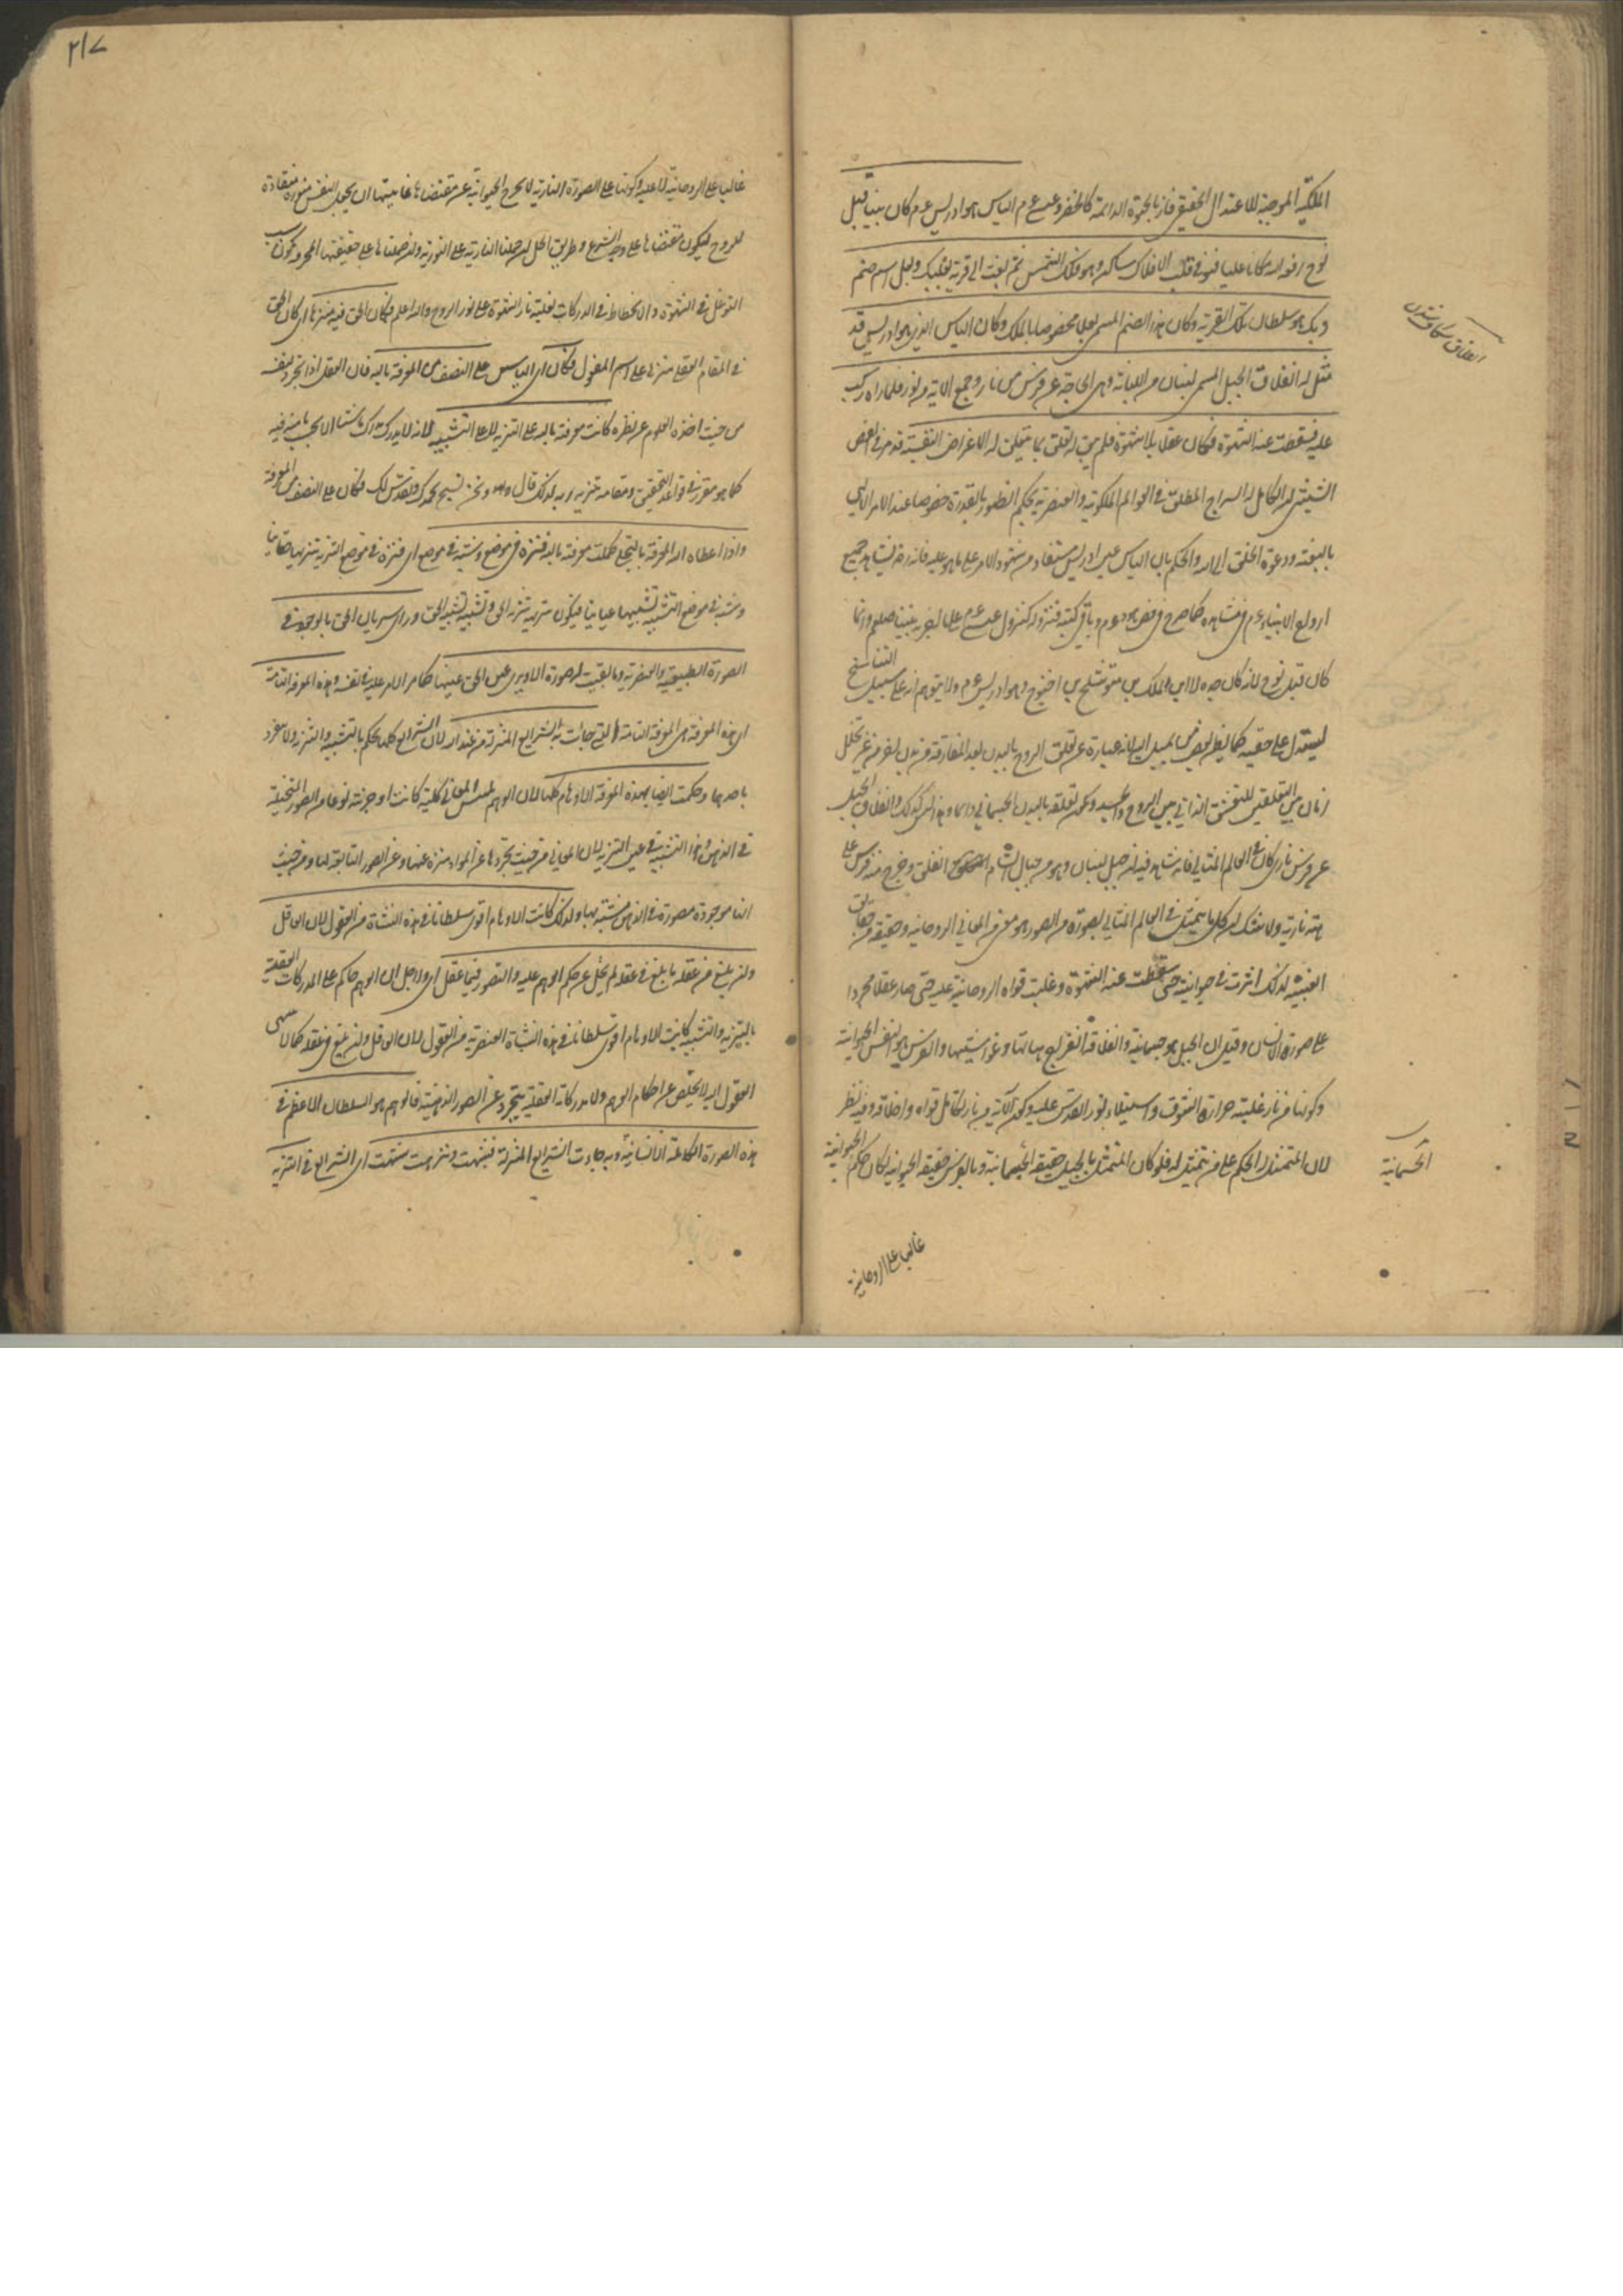 الملكية الموجبة للاعتدال الحقيقي فاز بالحيوة الدائمة كالخضر وعيسى عم الياس هو ادريس عم كان نبيا قبل
نوح رفعه الله مكانا عليا فهو في قلب الافلاك ساكن وهو فلك الشمس ثم بعث الى قرية بعلبك وبعل اسم صنم
وبك هو سلطان تلك القرية وكان هذا الصنم المسمى بعلا مخصوصا بالملك وكان الياس الذي هو ادريس قد
مثل له انفلاق الجبل المسمى لبنان من اللبانة وهي الحاجة عن فرس من نار وجميع الاته من نور فلما راه ركب
عليه فسقطت عنه الشهوة فكان عقلا بلا شهوة فلم يبق له تعلق بما يتعلق له الاغراض النفسية قد مر في الفص
الشيثي ان الكامل له السراح المطلق في العوالم الملكوتية والعنصرية بحكم الظهور بالقدرة خصوصا عند الامر الالهي
بالبعثة ودعوة الخلق الى الله والحكم بان الياس عين ادريس مستفاد من شهود الامر على ما هو عليه فانه رض يشاهد جميع
ارواح الانبياء عم في مشاهده كما صرح في فص هود عم وباقي كتبه فنزوله كنزول عيسى عم على ما اخبر به نبينا صلعم وانما
كان قبل نوح لانه كان جده لابن الملك بن متوشلح بن اخنوخ وهو ادريس عم ولا يتوهم انه على سبيل التناسخ
ليستدل على حقيته كما يظن بعض من يميل اليه لانه عبارة عن تعلق الروح بالبدن بعد المفارقة من بدن اخر من غير تخلل
زمان بين التعلقين للتعشق الذاتي بين الروح والجسد وكون تعلقه بالبدن الجسماني دائما وهذا ليس كذلك وانفلاق الجبل
عن فرس ناري كان في العالم المثالي فانه شاهد فيه ان جبل لبنان وهو من جبال الشام انفلق وخرج منه فرس على
هيئة نارية ولا شك ان كل ما يتمثل في العالم المثالي بصورة من الصور هو معنى من المعاني الروحانية وحقيقة من حقايق
الغيبية لذلك اثرت في حيوانيته حتى سقطت عنه الشهوة وغلبت قواه الروحانية عليه حتى صار عقلا مجردا
على صورة الانسان وقيل ان الجبل هو جسمانيته وانفلاقه انفراج هيآتها وغواشيها والفرس هو النفس الحيوانية
وكونها من نار غلبة حرارة الشوق واستيلاء نور القدس عليه وكون آلاته من نار تكامل قواه واخلاقه وفيه نظر
لان المتمثل له الحكم على من يتمثل له فلو كان المتمثل بالجبل حقيقته الجسمانية وبالفرس حقيقته الحيوانية لكان حكم الحيوانية
الجسمانية
غالبا على الروحانية
٢١٧
غالبا على الروحانية لا عليه وكونها على الصورة النارية لا يخرج الحيوانية عن مقتضاها غايتها ان يجعل النفس منورة منقادة
للروح ليكون مقتضاها على وجه الشرع وطريق الحل ان حملنا النارية على النورية وان حملناها على حقيقتها المحرقة يكون سبب
التوغل في الشهوة والانحطاط في الدركات لغلبة نار الشهوة على نور الروح والله اعلم فكان الحق فيه منزها اي كان الحق
في المقام العقلي منزها على اسم المفعول فكان اي الياس على النصف من المعرفة بالله فان العقل اذا تجرد لنفسه
من حيث اخذه العلوم عن نظره كانت معرفته بالله على التنزيه لا على التشبيه لانه لا يدرك
كما هو مقرر في قواعد التحقيق ومقامه تنزيه ربه لذلك قال ونحن نسبح بحمدك ونقدس لك فكان على النصف من المعرفة
واذا اعطاه الله المعرفة بالتجلي كملت معرفته بالله فنزه في موضع وشبه في موضع اي فنزه في موضع التنزيه تنزيها حقانيا
وشبه في موضع التشبيه تشبيها عيانيا فيكون تنزيهه تنزيه الحق وتشبيهه تشبيه الحق وراى سريان الحق بالوجود في
الصورة الطبيعية والعنصرية وما بقيت له صورة الا ويرى عين الحق عينها كما الامر عليه في نفسه وهذه المعرفة التامة
اي هذه المعرفة هي المعرفة التامة التي جاءت بها الشرايع المنزلة من عند الله لان الشرايع كلها تحكم بالتشبيه والتنزيه ولا تنفرد
باحدهما وحكمت ايضا بهذه المعرفة الاوهام كلها لان الوهم يلبس المعاني كلية كانت او جزئية نوعا من الصور المتخيلة
في الذهن وهذا التشبيه في عين التنزيه لان المعاني من حيث تجردها عن المواد منزهة عنها وعن الصور التابعة لها ومن حيث
انها موجودة مصورة في الذهن مشبهة بها ولذلك كانت الاوهام اقوى سلطانا في هذه النشأة من العقول لان العاقل
ولو بلغ من عقله ما بلغ في عقله لم يخل عن حكم الوهم عليه والتصور فيما عقل اي ولاجل ان الوهم حاكم على المدركات العقلية
بالتنزيه والتشبيه كانت الاوهام اقوى سلطانا في هذه النشأة العنصرية من العقول لان العاقل ولو بلغ في عقله كمالا ينتهي
العقول اليه لا يتخلص عن احكام الوهم ولا مدركاته العقلية تتجرد عن الصور الذهنية فالوهم هو السلطان الاعظم في
هذه الصورة الكاملة الانسانية وبه جاءت الشرايع المنزلة فشبهت ونزهت شبهت اي الشرايع في التنزيه